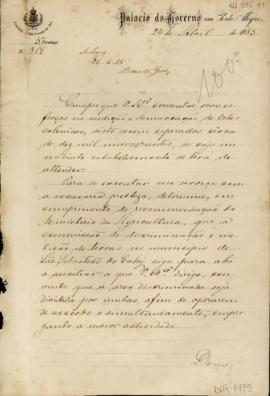 Palacio do Governo em Porto Alegre,
24 de Abril de 1885
5ª
Cumpre que V. Mcê concentre seus es-
forços na medição e demarcação de lotes
coloniaes, visto serem esperados cêrca
de dez mil immigrantes, a cujo im-
mediato estabelecimento se terá de
attender.
Para se executar esse serviço com
a necessaria presteza, determino, em
cumprimento de recommendação do
Ministerio da Agricultura, que a
commissão de discriminação e me-
dição de terras no municipio de
São Sebastião do Cahy siga para ahi
a auxiliar a que V. Mcê dirige, con-
vindo que a area discriminada seja
dividida por ambas, afim de operarem
de accôrdo e simultaneamente, empre-
gando a maior actividade.
Deus